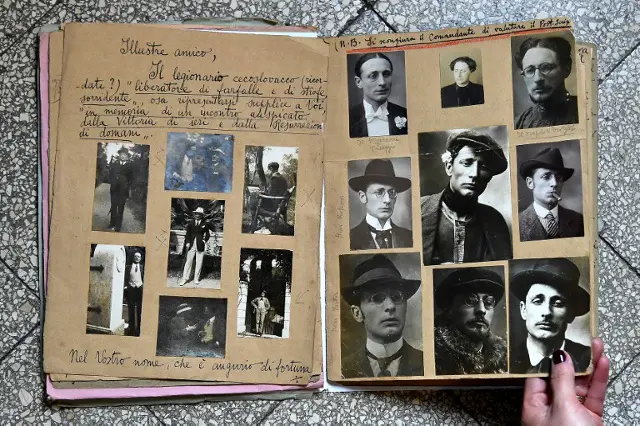 Illustre amico,
Il legionario cecoslovacco (ricor-
date?) "liberatore di farfalle e di strofe
sorridente", osa ripresentarsi supplice a Voi
"in memoria di un incontro auspicato
dalla Vittoria di ieri e dalla Resurrezion
di domani".
Nel Vostro nome, che è augurio di fortuna
(N.B. Si scongiura il Comandante di valutare il